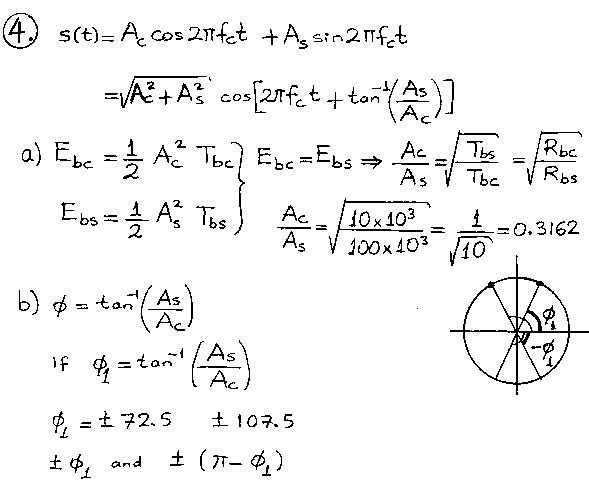 ④. s(t) = A_c cos 2πf_c t + A_s sin 2πf_c t
= √(A_c² + A_s²) cos[2πf_c t + tan⁻¹(A_s/A_c)]
a) E_bc = 1/2 A_c² T_bc } E_bc = E_bs ⇒ A_c/A_s = √(T_bs/T_bc) = √(R_bc/R_bs)
E_bs = 1/2 A_s² T_bs } A_c/A_s = √(10×10³/100×10³) = 1/√10 = 0.3162
b) φ = tan⁻¹(A_s/A_c)
if φ₁ = tan⁻¹(A_s/A_c)
φ₁ = ± 72.5 ± 107.5
± φ₁ and ± (π − φ₁)
φ₁
−φ₁